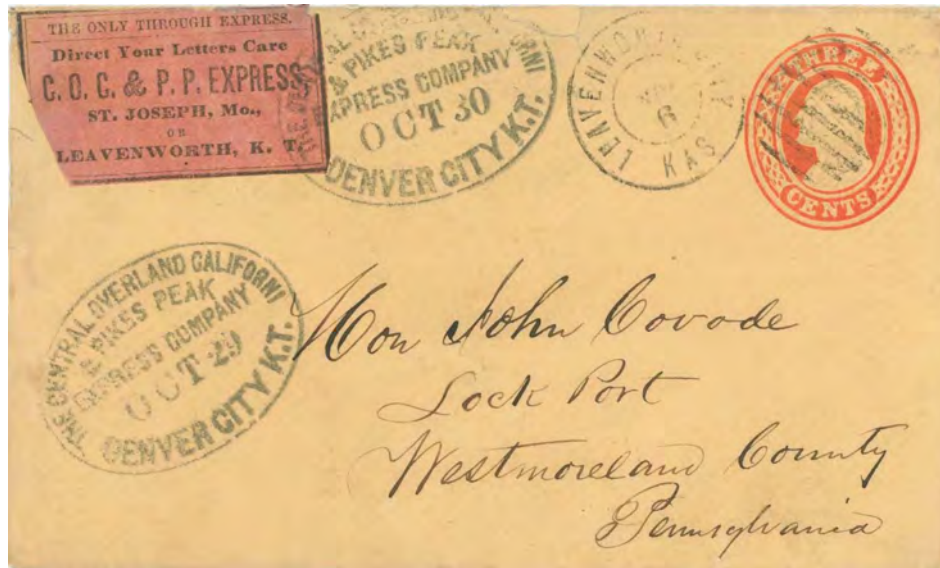 THE ONLY THROUGH EXPRESS.
Direct Your Letters Care
C. O. C. & P. P. EXPRESS,
ST. JOSEPH, Mo.,
OR
LEAVENWORTH, K. T.
& PIKES PEAK
EXPRESS COMPANY
OCT 30
DENVER CITY K.T.
LEAVENWORTH CITY
6
KAS
THREE
CENTS
THE CENTRAL OVERLAND CALIFORNI
& PIKES PEAK
EXPRESS COMPANY
OCT 29
DENVER CITY K.T.
Hon John Covode
Lock Port
Westmoreland County
Pennsylvania